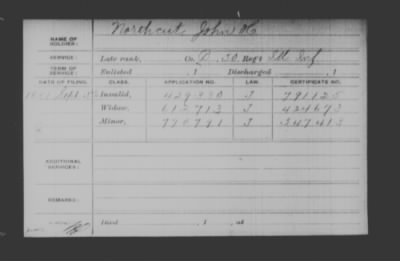 NAME OF SOLDIER: Northcut John H
SERVICE: Late rank, Co. D, 30 Reg't Ill Inf
TERM OF SERVICE: Enlisted , 1 Discharged , 1
DATE OF FILING. CLASS. APPLICATION NO. LAW. CERTIFICATE NO.
Sept. Invalid, J 791125
Widow, 612713 J 424673
Minor, 770791 J 547413
ADDITIONAL SERVICES:
REMARKS:
Died , 1 , at